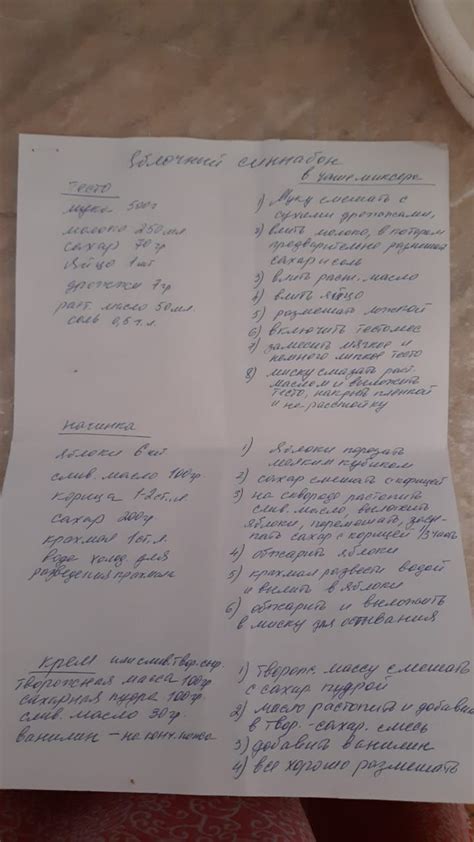 Яблочный синнабон
Тесто
мука 500г
молоко 250 мл.
сахар 70 гр
яйцо 1 шт
дрожжи 7 гр
раст. масло 50 мл.
соль 0,5 ч.л.
в чаше миксера
1) Муку смешать с
сухими дрожжами,
2) влить молоко, в котором
предварительно размешать
сахар и соль
3) влить раст. масло
4) влить яйцо
5) размешать ложкой
6) включить тестомес
7) замесить мягкое и
немного липкое тесто
8) миску смазать раст.
маслом и выложить
тесто, накрыть пленкой
и на расстойку
Начинка
яблоки 6 шт
слив. масло 100 гр.
корица 1-2 ст.л.
сахар 200 гр
крахмал 1 ст.л.
вода холод. для
разведения крахмала
1) Яблоки порезать
мелким кубиком
2) сахар смешать с корицей
3) на сковороде растопить
слив. масло, выложить
яблоки, перемешать, засы-
пать сахар с корицей 1/3 часть
4) обжарить яблоки
5) крахмал развести водой
и вылить в яблоки
6) обжарить и выложить
в миску для остывания
Крем или слив. твор. сыр.
творожная масса 100 гр
сахарная пудра 100 гр.
слив. масло 30 гр.
ванилин – на конч. ножа
1) творож. массу смешать
с сахар. пудрой
2) масло растопить и добавить
в твор.-сахар. смесь
3) добавить ванилин
4) все хорошо размешать